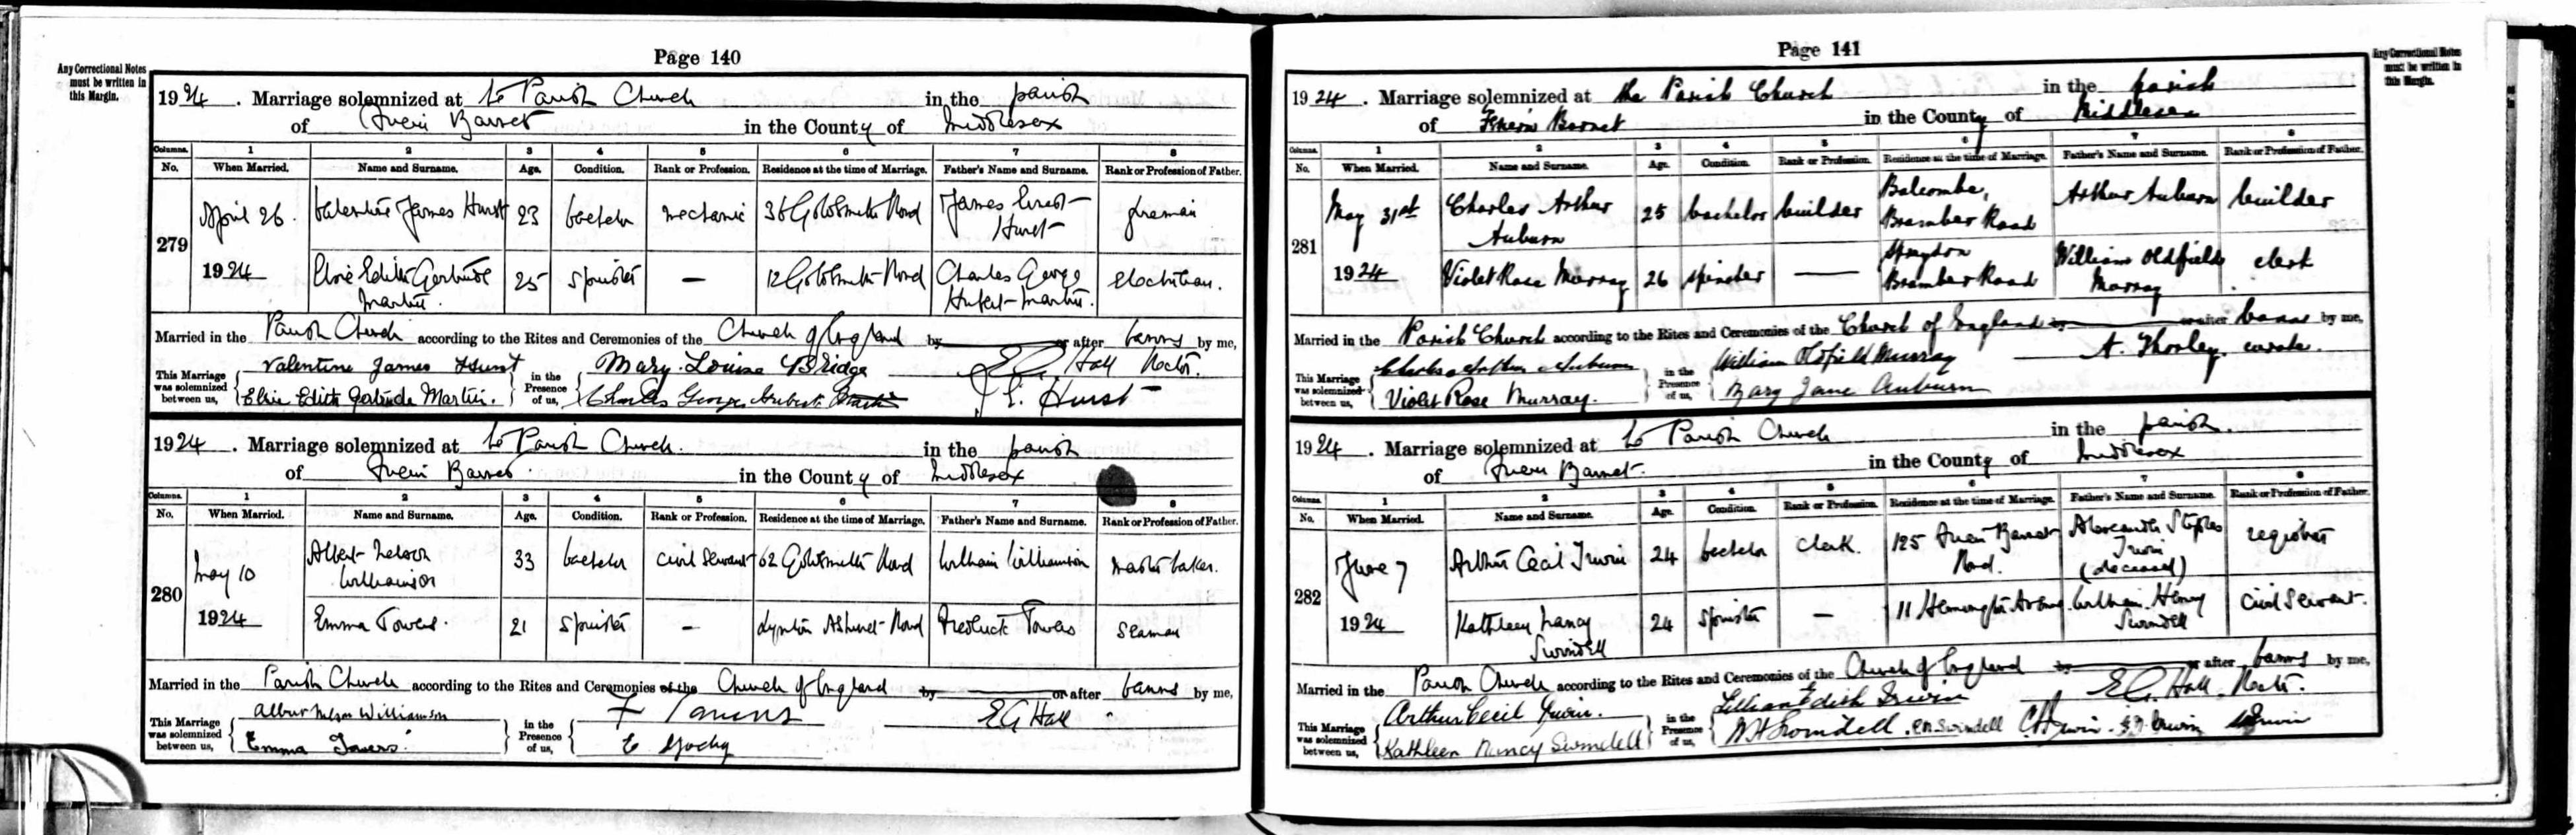 Page 140
Any Correctional Notes
must be written in
this Margin.
1924. Marriage solemnized at the Parish Church in the parish
of Friern Barnet in the County of Middlesex
Columns. 1 2 3 4 5 6 7 8
No. When Married. Name and Surname. Age. Condition. Rank or Profession. Residence at the time of Marriage. Father's Name and Surname. Rank or Profession of Father.
279 April 26 1924
Valentine James Hurst 23 bachelor mechanic 36 Goldsmith Road James Ernest Hurst fireman
Elsie Edith Gertrude Martin. 25 spinster — 12 Goldsmith Road Charles George Hubert Martin. electrician.
Married in the Parish Church according to the Rites and Ceremonies of the Church of England by or after banns by me,
This Marriage was solemnized between us, Valentine James Hurst in the Presence of us, Mary Louise Bridge E G Hall Rector.
Elsie Edith Gertrude Martin. Charles George Hubert Martin J E. Hurst
1924. Marriage solemnized at the Parish Church. in the parish
of Friern Barnet in the County of Middlesex
Columns. 1 2 3 4 5 6 7 8
No. When Married. Name and Surname. Age. Condition. Rank or Profession. Residence at the time of Marriage. Father's Name and Surname. Rank or Profession of Father.
280 May 10 1924
Albert Nelson Williamson 33 bachelor civil servant 62 Goldsmith Road William Williamson master baker.
Emma Towers. 21 spinster — Lynton Ashurst Road Frederick Towers seaman
Married in the Parish Church according to the Rites and Ceremonies of the Church of England by or after banns by me,
This Marriage was solemnized between us, Albert Nelson Williamson in the Presence of us, F Towers E G Hall
Emma Towers E
Page 141
Any Correctional Notes
must be written in
this Margin.
1924. Marriage solemnized at the Parish Church in the parish
of Friern Barnet in the County of Middlesex
Columns. 1 2 3 4 5 6 7 8
No. When Married. Name and Surname. Age. Condition. Rank or Profession. Residence at the time of Marriage. Father's Name and Surname. Rank or Profession of Father.
281 May 31st 1924
Charles Arthur Auburn 25 bachelor builder Balcombe, Bramber Road Arthur Auburn builder
Violet Rose Murray 26 spinster — Bramber Road William Oldfield Murray clerk
Married in the Parish Church according to the Rites and Ceremonies of the Church of England by or after banns by me,
This Marriage was solemnized between us, Charles Arthur Auburn in the Presence of us, William Oldfield Murray A. Thorley, curate.
Violet Rose Murray. Mary Jane Auburn
1924. Marriage solemnized at the Parish Church in the parish.
of Friern Barnet. in the County of Middlesex
Columns. 1 2 3 4 5 6 7 8
No. When Married. Name and Surname. Age. Condition. Rank or Profession. Residence at the time of Marriage. Father's Name and Surname. Rank or Profession of Father.
282 June 7 1924
Arthur Cecil Irwin 24 bachelor clerk. 125 Friern Barnet Road. Alexander Staples Irwin (deceased) registrar
Kathleen Nancy Swindell 24 spinster — 11 Hemington Avenue William Henry Swindell Civil Servant.
Married in the Parish Church according to the Rites and Ceremonies of the Church of England by or after banns by me,
This Marriage was solemnized between us, Arthur Cecil Irwin. in the Presence of us, Lillian Edith Irwin E G Hall. Rector.
Kathleen Nancy Swindell W H Swindell. E.M. Swindell Irwin. Irwin Irwin